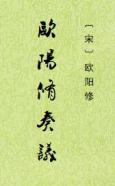 〔宋〕欧阳修
歐陽脩奏議